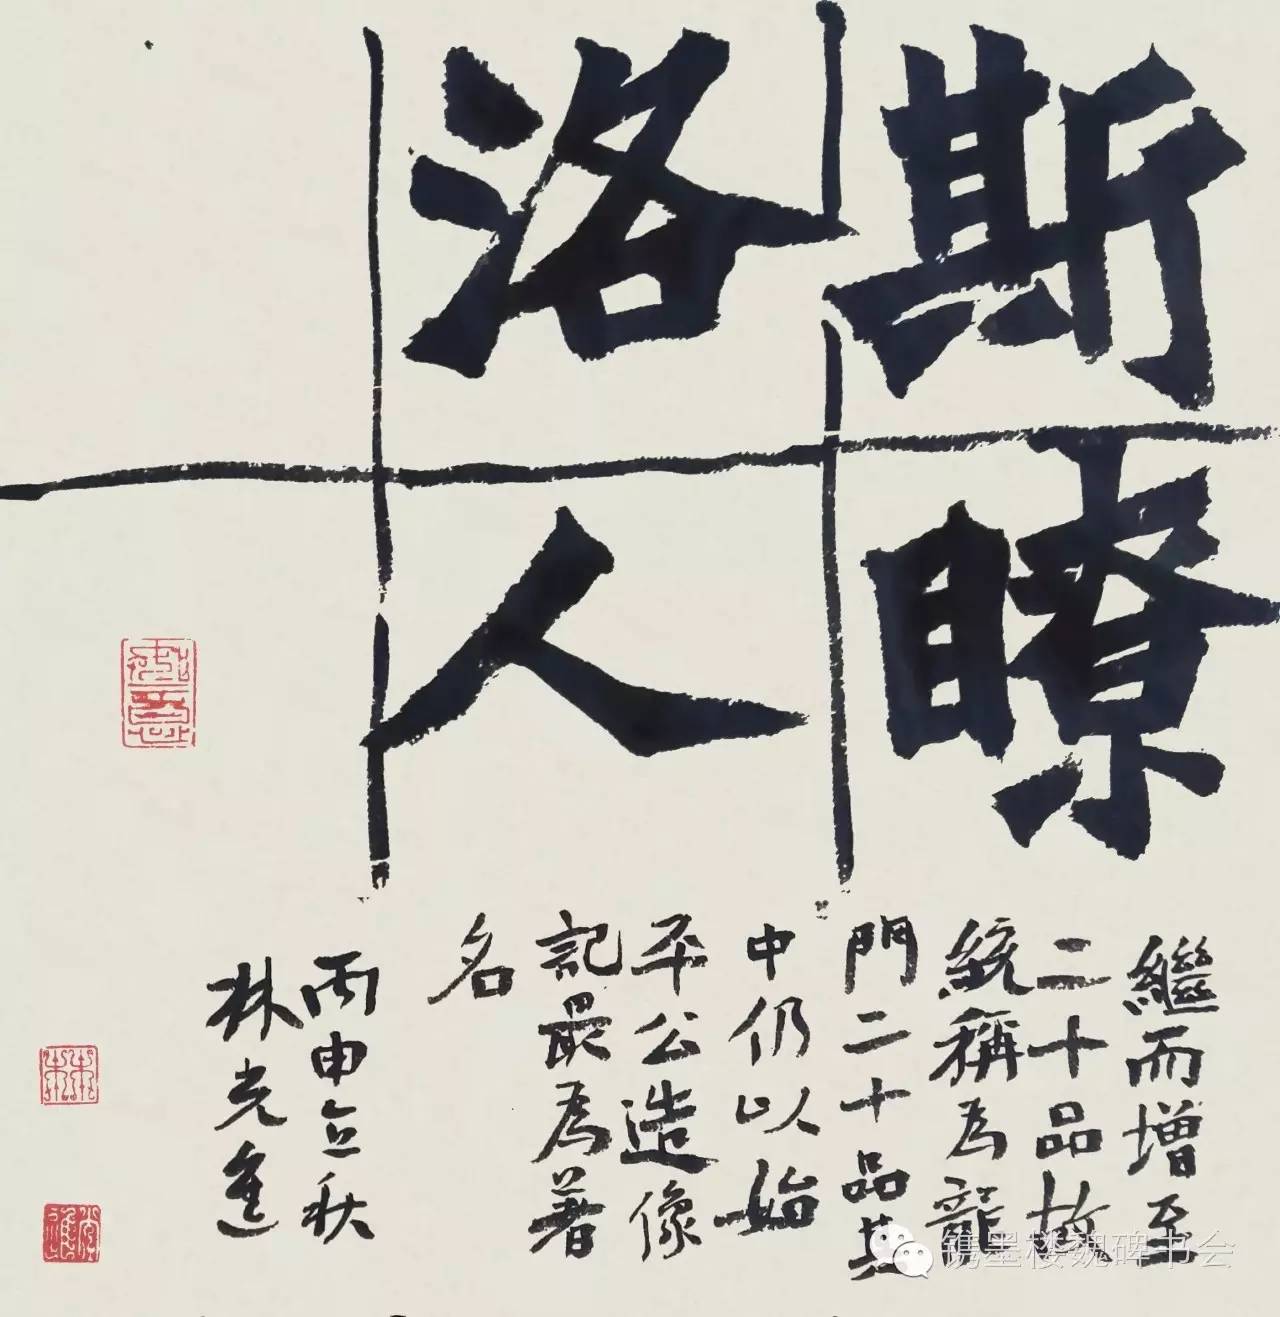 斯瞭
洛人
繼而增至
二十品故
統稱為龍
門二十品其
中仍以始
平公造像
記最為著
名
丙申立秋
林光進
镌墨楼魏碑书会